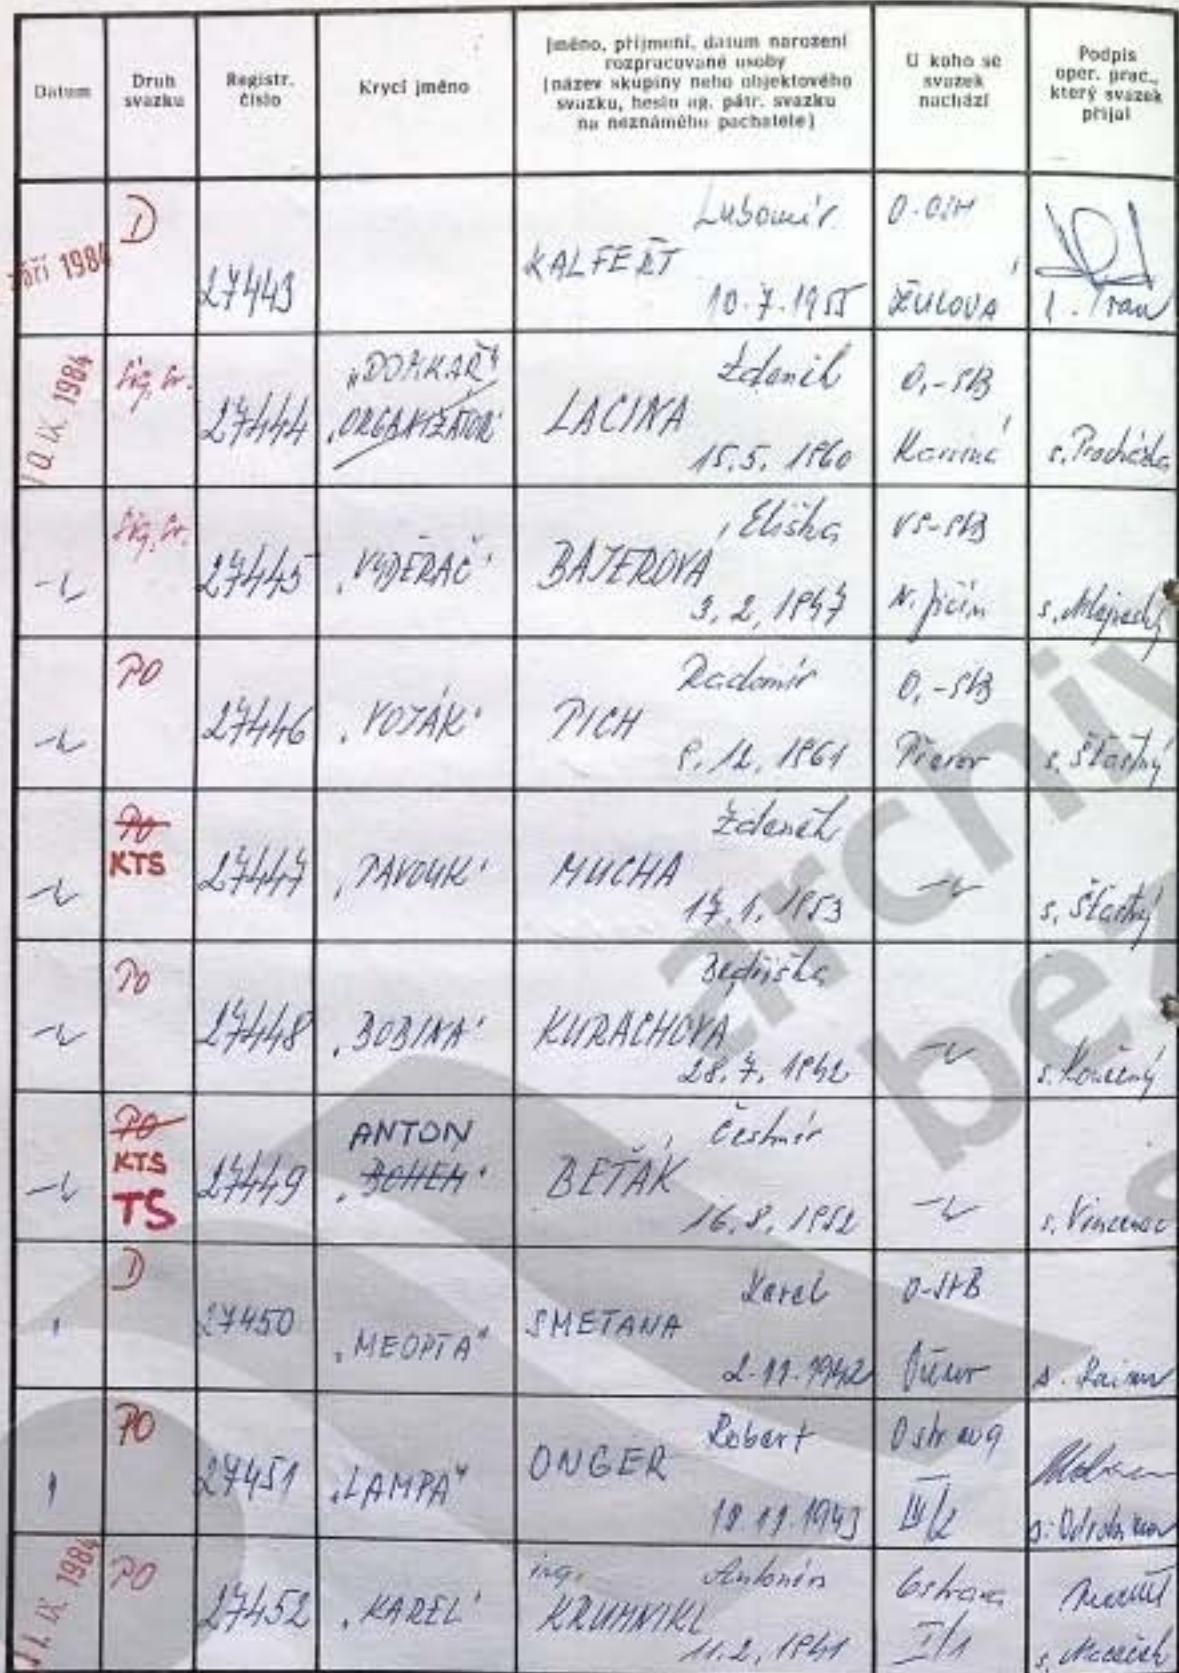 Datum
Druh
svazku
Registr.
číslo
Krycí jméno
Jméno, příjmení, datum narození
rozpracované osoby
(název skupiny nebo objektového
svazku, heslo ag. pátr. svazku
na neznámého pachatele)
U koho se
svazek
nachází
Podpis
oper. prac.,
který svazek
přijal
září 1984
D
27443
Lubomír
KALFEŘT
10.7.1955
ŽULOVÁ
10. IX. 1984
Sig. sv.
27444
"DOMKAŘ"
"ORGANIZÁTOR"
Zdeněk
LACINA
15.5. 1960
O.-StB
Karviná
s. Procházka
Sig. sv.
27445
"VYDĚRAČ"
Eliška
BAJEROVÁ
3. 2. 1947
VS-StB
N. Jičín
s.
PO
27446
"VOJÁK"
Radomír
PICH
12. 1961
O.-StB
Přerov
s. Šťastný
PO
KTS
27447
"PAVOUK"
Zdeněk
MUCHA
17. 1. 1953
s. Šťastný
PO
27448
"BOBINA"
Bedřiška
KURACHOVÁ
28. 7. 1942
s. Konečný
PO
KTS
TS
27449
ANTON
"BOHEM"
Čestmír
BEŤÁK
16. 8. 1952
s. Vincenec
D
27450
"MEOPTA"
Karel
SMETANA
2.11.1942
O-StB
s.
PO
27451
"LAMPA"
Robert
ONGER
18.11.1943
Ostrava
III/2
s.
11. IX. 1984
PO
27452
"KAREL"
ing. Antonín
KRUMNIKL
11.2. 1941
Ostrava
I/1
s. Maceček
archiv
bez